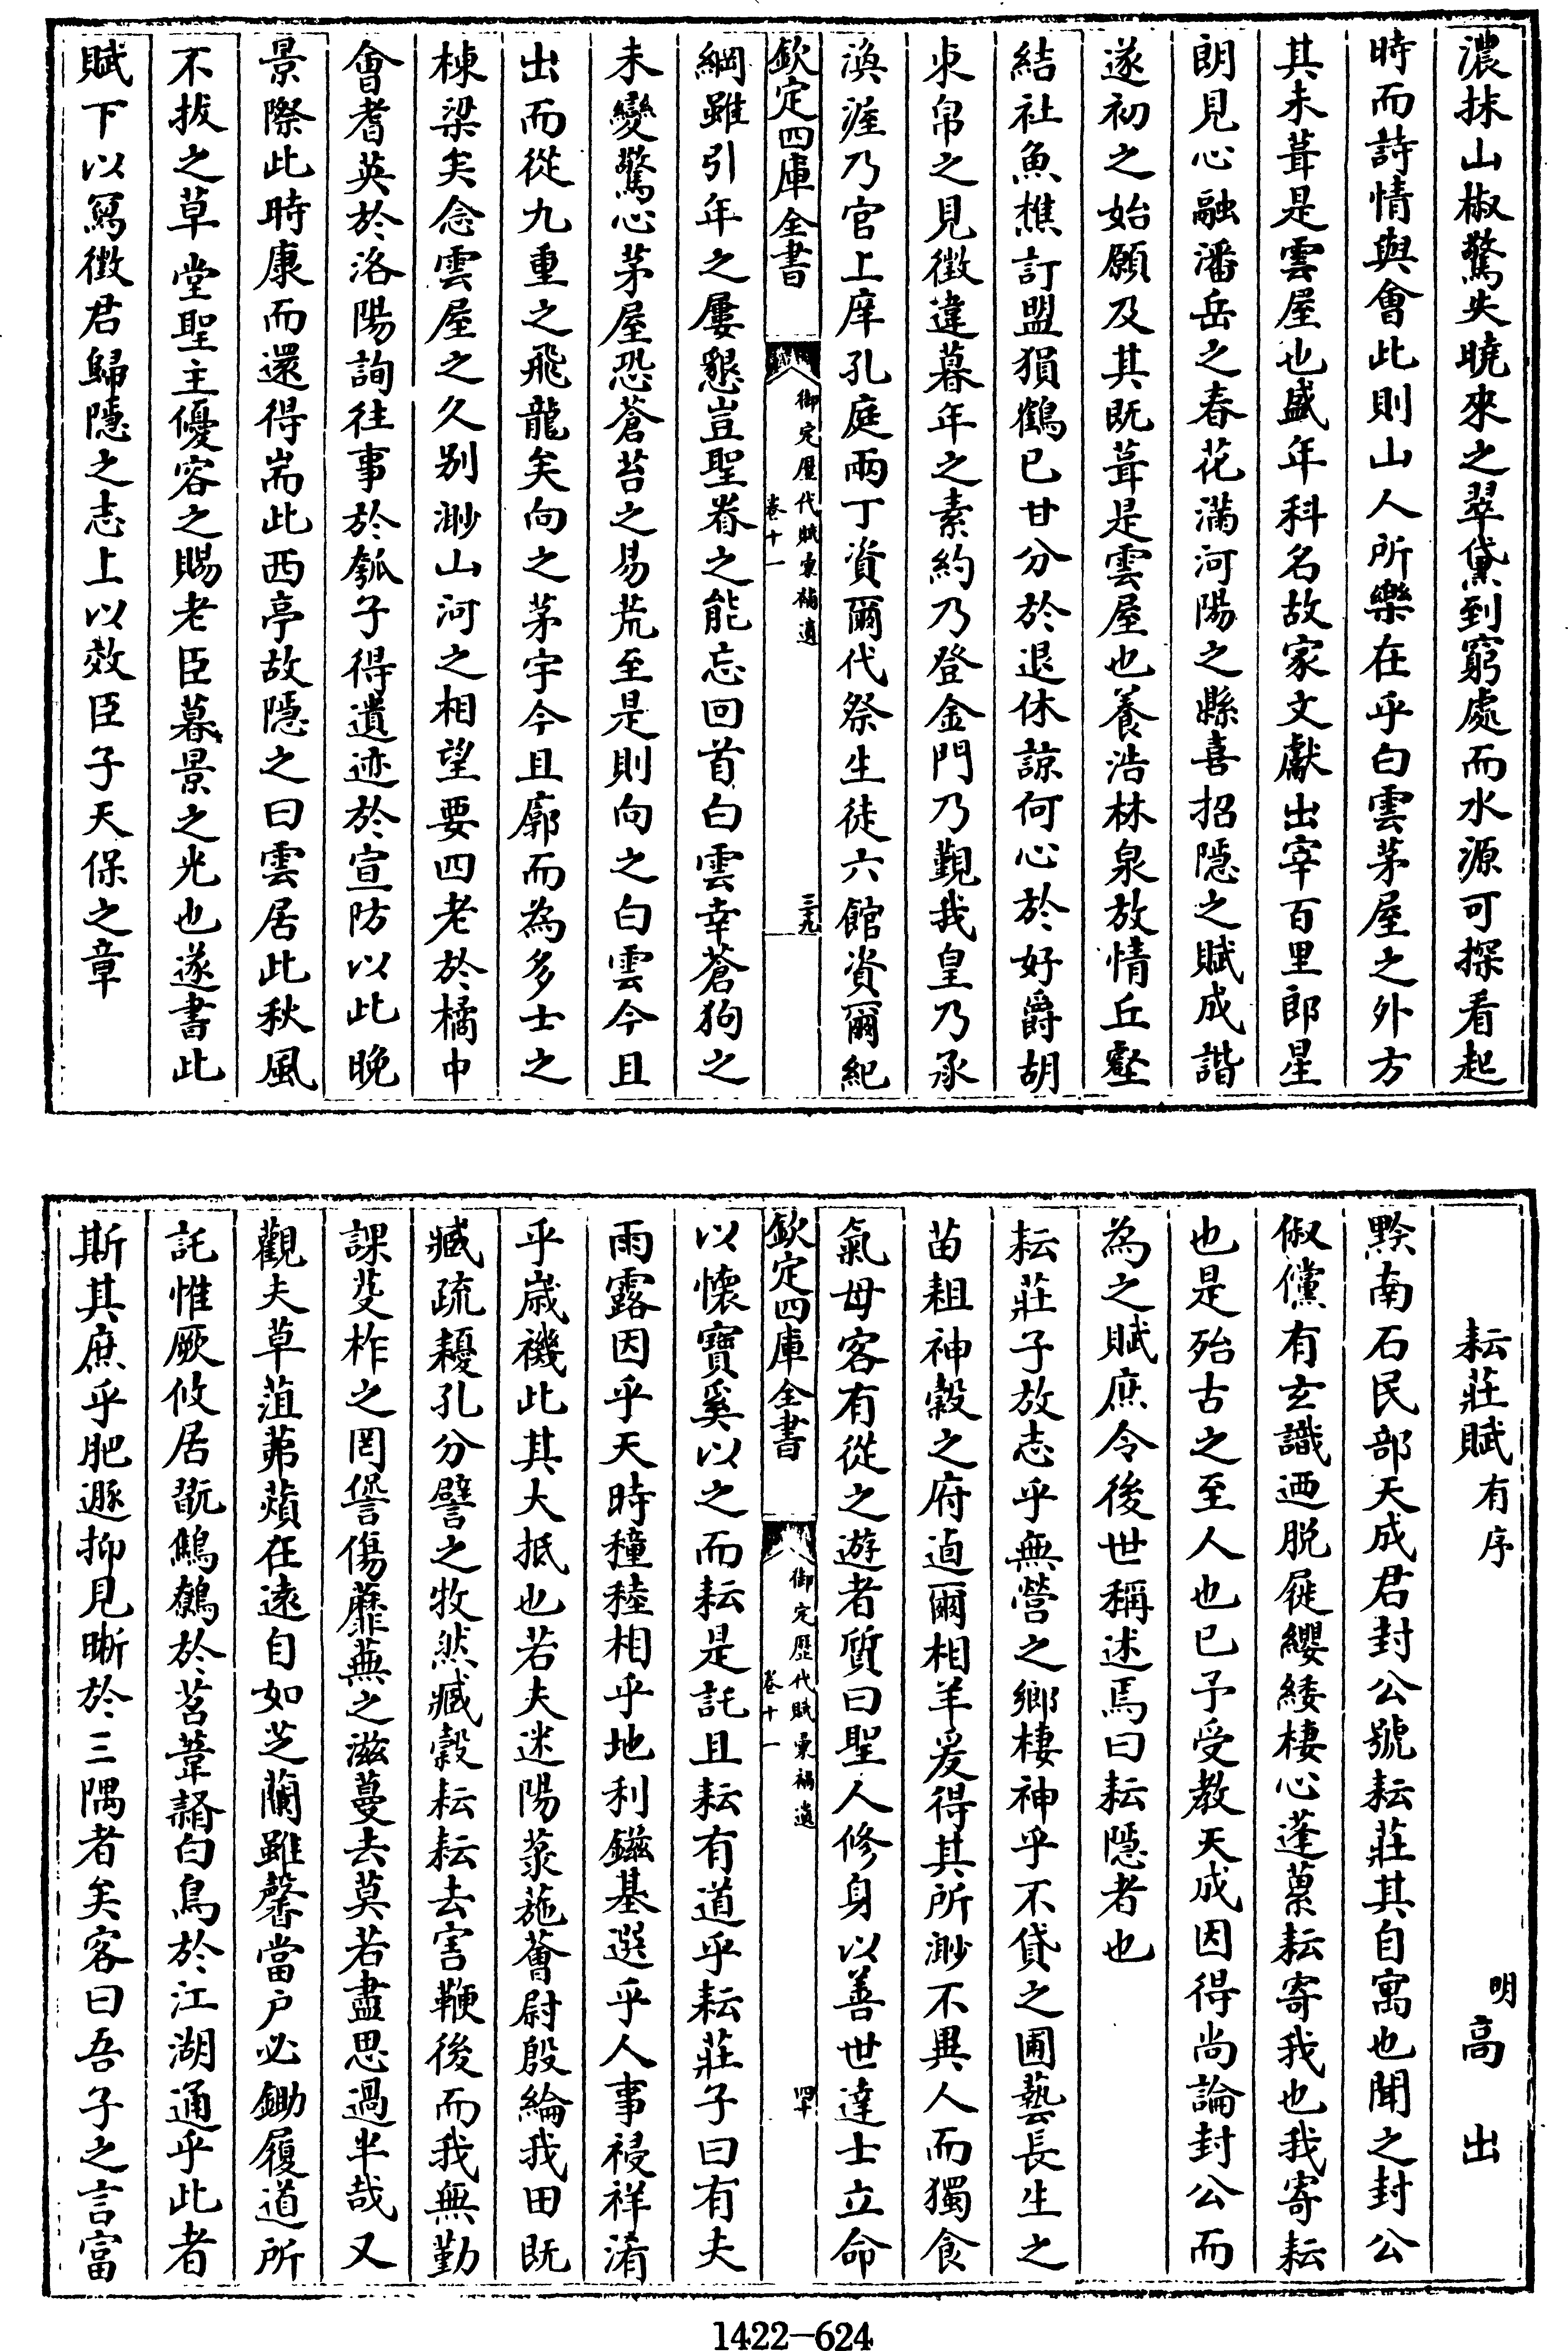 濃抹山椒驚失曉來之翠黛到窮處而水源可探看起
時而詩情與會此則山人所樂在乎白雲茅屋之外方
其未葺是雲屋也盛年科名故家文獻出宰百里郎星
朗見心融潘岳之春花滿河陽之縣喜招隠之賦成諧
遂初之始願及其既葺是雲屋也養浩林泉放情丘壑
結社魚樵訂盟猿鶴已甘分於退休諒何心於好爵胡
束帛之見徴違暮年之素約乃登金門乃覲我皇乃承
渙渥乃官上庠孔庭兩丁資爾代祭生徒六館資爾紀
欽定四庫全書
御定歷代賦彙補遺
卷十一
三九
綱雖引年之屢懇豈聖眷之能忘回首白雲幸蒼狗之
未變驚心茅屋恐蒼苔之易荒至是則向之白雲今且
出而從九重之飛龍矣向之茅宇今且廓而為多士之
棟梁矣念雲屋之久別渺山河之相望要四老於橘中
會耆英於洛陽詢往事於瓠子得遺迹於宣防以此晚
景際此時康而還得耑此西亭故隠之曰雲居此秋風
不拔之草堂聖主優容之賜老臣暮景之光也遂書此
賦下以寫徴君歸隱之志上以效臣子天保之章
耘莊賦有序
明
高出
黔南石民部天成君封公號耘莊其自寓也聞之封公
俶儻有玄識迺脱屣纓緌棲心蓬藁耘寄我也我寄耘
也是殆古之至人也已予受教天成因得尚論封公而
為之賦庶令後世稱述焉曰耘隱者也
耘莊子放志乎無營之鄉棲神乎不貸之圃藝長生之
苗耝神穀之府逌爾相羊爰得其所渺不異人而獨食
氣母客有從之遊者質曰聖人修身以善世達士立命
欽定四庫全書
御定歷代賦彙補遺
卷十一
四十
以懷寶奚以之而耘是託且耘有道乎耘莊子曰有夫
雨露因乎天時穜稑相乎地利鎡基選乎人事祲祥淆
乎歲禨此其大抵也若夫迷陽菉葹薈尉殷綸我田既
臧疏耰孔分譬之牧然臧穀耘耘去害鞭後而我無勤
課芟柞之罔愆傷蘼蕪之滋蔓去莫若盡思過半哉又
觀夫草菹茀薠在遠自如芝蘭雖馨當户必鋤履道所
託惟厥攸居翫鷦鷯於苕葦翯白鳥於江湖通乎此者
斯其庶乎肥遯抑見晰於三隅者矣客曰吾子之言富
1422—624